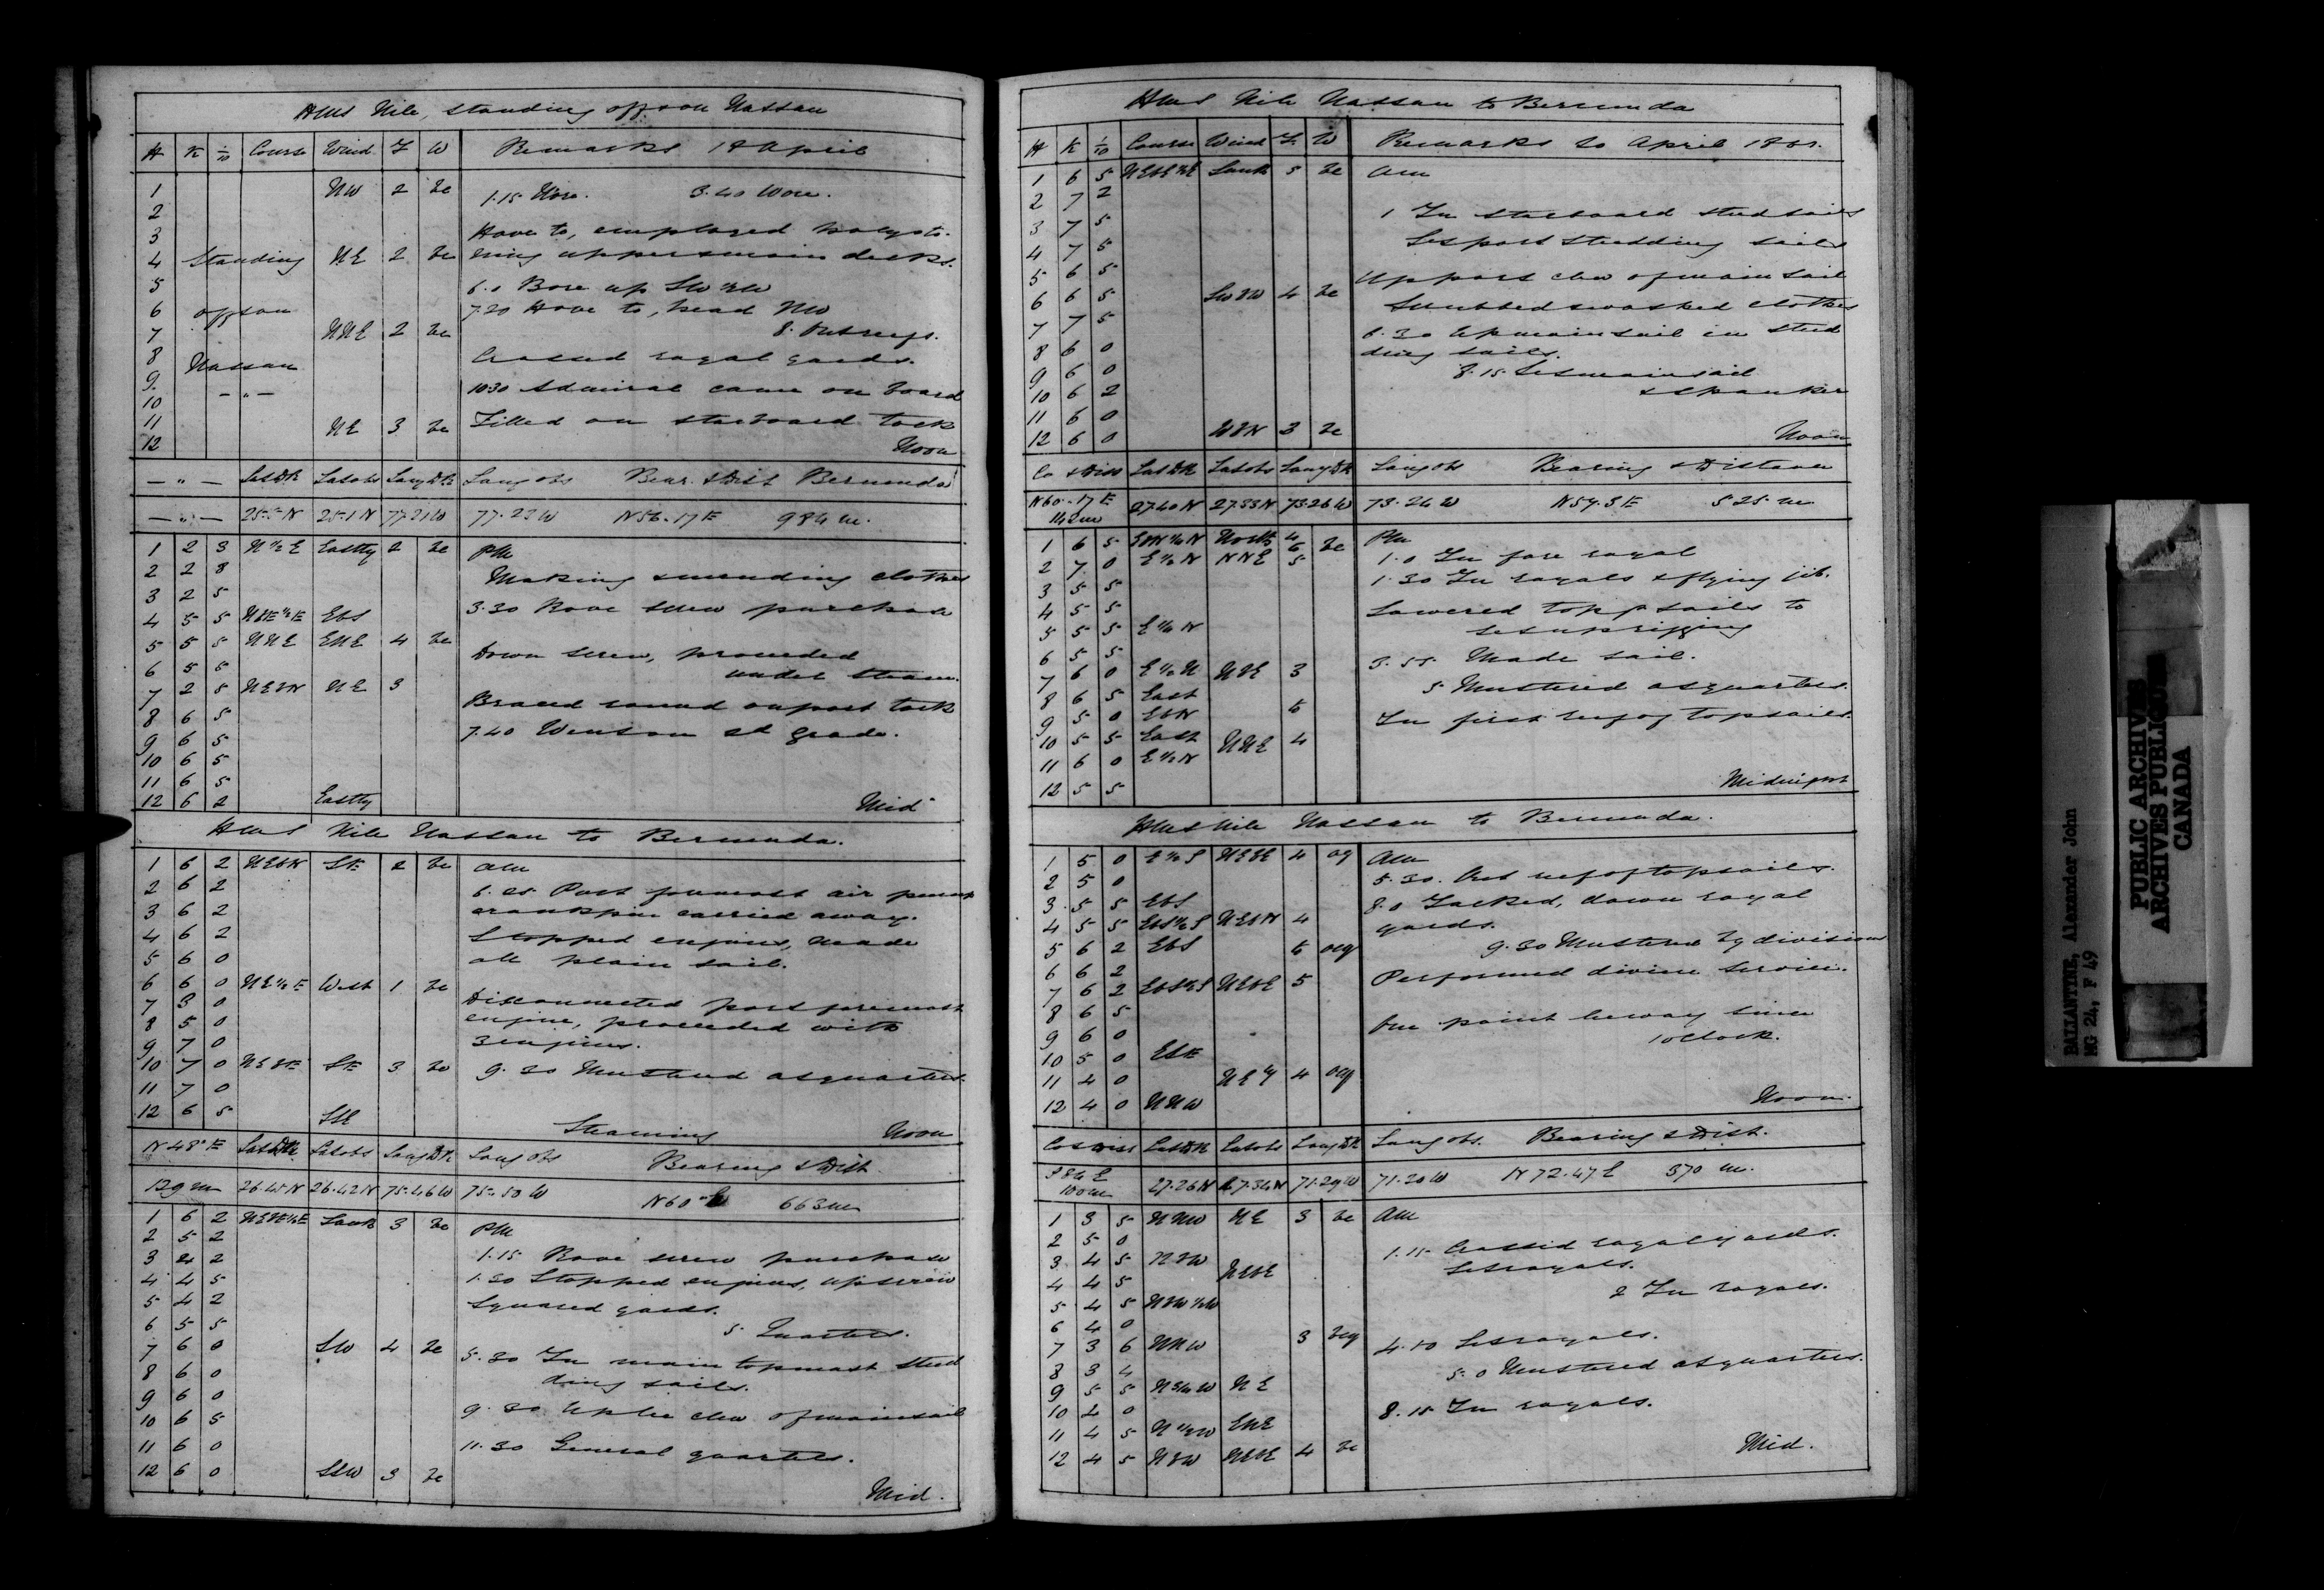 HMS Nile, standing off & on Nassau
H K 1/10 Course Wind F W Remarks 18 April
1 NW 2 bc 1.15 Wore. 3.40 Wore.
2
3 Hove to, employed holysto-
4 Standing NE 2 bc ning upper & main decks.
5 6.0 Bore up SW
6 off & on 7.20 Hove to, head NW
7 NNE 2 bc 8. Out reefs.
8 Nassau Crossed royal yards.
9
10 — " — 10 30 Admiral came on board
11 Filled on starboard tack
12 NE 3 bc Noon
— " — Lat DR Lat obs Long DR Long obs Bear. & Dist Bermuda
— " — 25.5 N 25.1 N 77.21 W 77.23 W N 56.17 E 984 m.
1 2 3 N 1/2 E Eastly 2 bc PM
2 2 8 Making & mending clothes
3 2 5
4 5 5 NbE 1/2 E EbS 3.30 Rove screw purchase
5 5 5 NNE ENE 4 bc
6 5 5 Down screw, proceeded under steam.
7 2 5 NEbN NE 3
8 6 5 Braced round on port tack
9 6 5 7.40 Went on 2d grade.
10 6 5
11 6 5
12 6 2 Eastly Mid
HMS Nile Nassau to Bermuda.
1 6 2 NEbN SE 2 bc AM
2 6 2 6.25 Port foremost air pump
3 6 2 crankpin carried away.
4 6 2 Stopped engines, made
5 6 0 all plain sail.
6 6 0 NE 1/2 E West 1 bc
7 3 0 Disconnected port foremost
8 5 0 engine, proceeded with
9 7 0 3 engines.
10 7 0 NEbE SE 3 bc 9.30 Mustered at quarters.
11 7 0
12 6 5 SSE Steaming Noon
N 48° E Lat DR Lat obs Long DR Long obs Bearing & Dist
129 m 26.45 N 26.42 N 75.46 W 75.50 W N 60° E 663 m
1 6 2 NEbE 1/2 E South 3 bc PM
2 5 2
3 4 2 1.15 Rove screw purchase
4 4 5 1.30 Stopped engines, up screw
5 4 2 Squared yards.
6 5 5 5. Quarters.
7 6 0 SW 4 bc 5.30 In main topmast stud
8 6 0 ding sails.
9 6 0
10 6 5 9.30 Up lee clew of mainsail
11 6 0 11.30 General quarters.
12 6 0 SSW 3 bc Mid.
HMS Nile Nassau to Bermuda
H K 1/10 Course Wind F W Remarks 20 April 1861.
1 6 5 NEbE 1/2 E South 5 bc AM
2 7 2
3 7 5 1 In starboard studsails
4 7 5 Set port studding sails
5 6 5 Up port clew of mainsail
6 6 5 SWbW 4 bc Scrubbed & washed clothes
7 7 5 6.30 Up mainsail in stud
8 6 0 ding sails.
9 6 0 8.15 Set mainsail
10 6 2 & spanker
11 6 0
12 6 0 WbN 3 bc Noon
Co & Diss Lat DR Lat obs Long DR Long obs Bearing & Distance
N 60.17 E 142 m 27.40 N 27.33 N 73.26 W 73.24 W N 59.3 E 525 m
1 6 5 EbN 1/4 N North 4/6 bc PM
2 7 0 E 1/2 N NNE 5 1.0 In fore royal
3 5 5 1.30 In royals & flying jib.
4 5 5 Lowered topsails to
5 5 5 E 1/4 N set up rigging
6 5 5 3.55 Made sail.
7 6 0 E 1/2 N NbE 3
8 6 5 East 5 Mustered at quarters.
9 5 0 EbN 6 In first reef of topsails.
10 5 5 East NNE 4
11 6 0 E 1/2 N
12 5 5 Midnight
HMS Nile Nassau to Bermuda.
1 5 0 E 1/2 S NEbE 4 og AM
2 5 0 5.30. Out reef of topsails.
3 5 5 EbS 8.0 Tacked, down royal
4 5 5 EbS 1/2 S NEbN 4 yards.
5 6 2 EbS 6 ocg 9.30 Mustered by divisions
6 6 2 Performed divine service.
7 6 2 EbS 1/2 S NEbE 5
8 6 5 One point leeway since
9 6 0 1 oclock.
10 5 0 ESE
11 4 0 NEly 4 ocg
12 4 0 NNW Noon.
Co & Diss Lat DR Lat obs Long DR Long obs. Bearing & Dist.
S 84 E 100 m 27.26 N 27.34 N 71.29 W 71.20 W N 72.47 E 370 m.
1 3 5 NNW NE 3 bc AM
2 5 0 1.15 Crossed royal yards.
3 4 5 NbW Set royals.
4 4 5 NEbE 2 In royals.
5 4 5 NbW 1/2 W
6 4 0
7 3 6 NNW 3 bcg 4.10 Set royals.
8 3 4 5.0 Mustered at quarters.
9 5 5 N 3/4 W NE
10 4 0 8.15 In royals.
11 4 5 N 1/2 W ENE
12 4 5 NbW NEbE 4 bc Mid.
BALLANTYNE, Alexander John
MG 24, F 49
PUBLIC ARCHIVES
ARCHIVES PUBLIQUES
CANADA